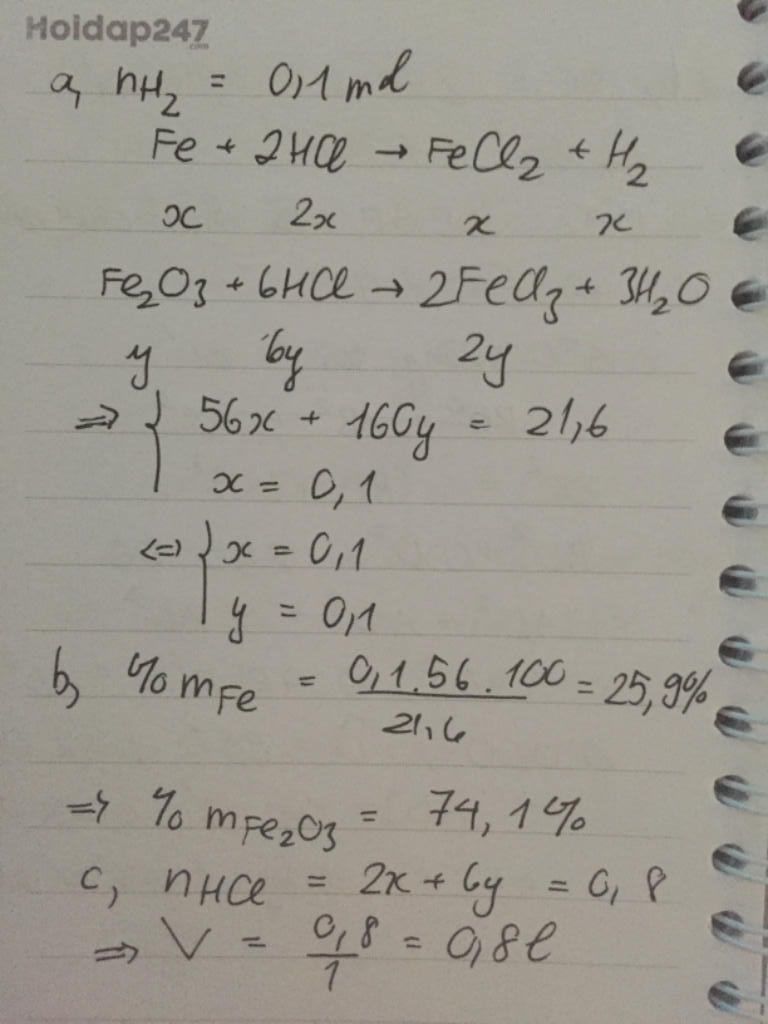 Hoidap247
.com
a, nH2 = 0,1 mol
Fe + 2HCl → FeCl2 + H2
x 2x x x
Fe2O3 + 6HCl → 2FeCl3 + 3H2O
y 6y 2y
=> { 56x + 160y = 21,6
x = 0,1
<=> { x = 0,1
y = 0,1
b, % mFe = 0,1.56.100 / 21,6 = 25,9%
=> % mFe2O3 = 74,1%
c, nHCl = 2x + 6y = 0,8
=> V = 0,8 / 1 = 0,8l